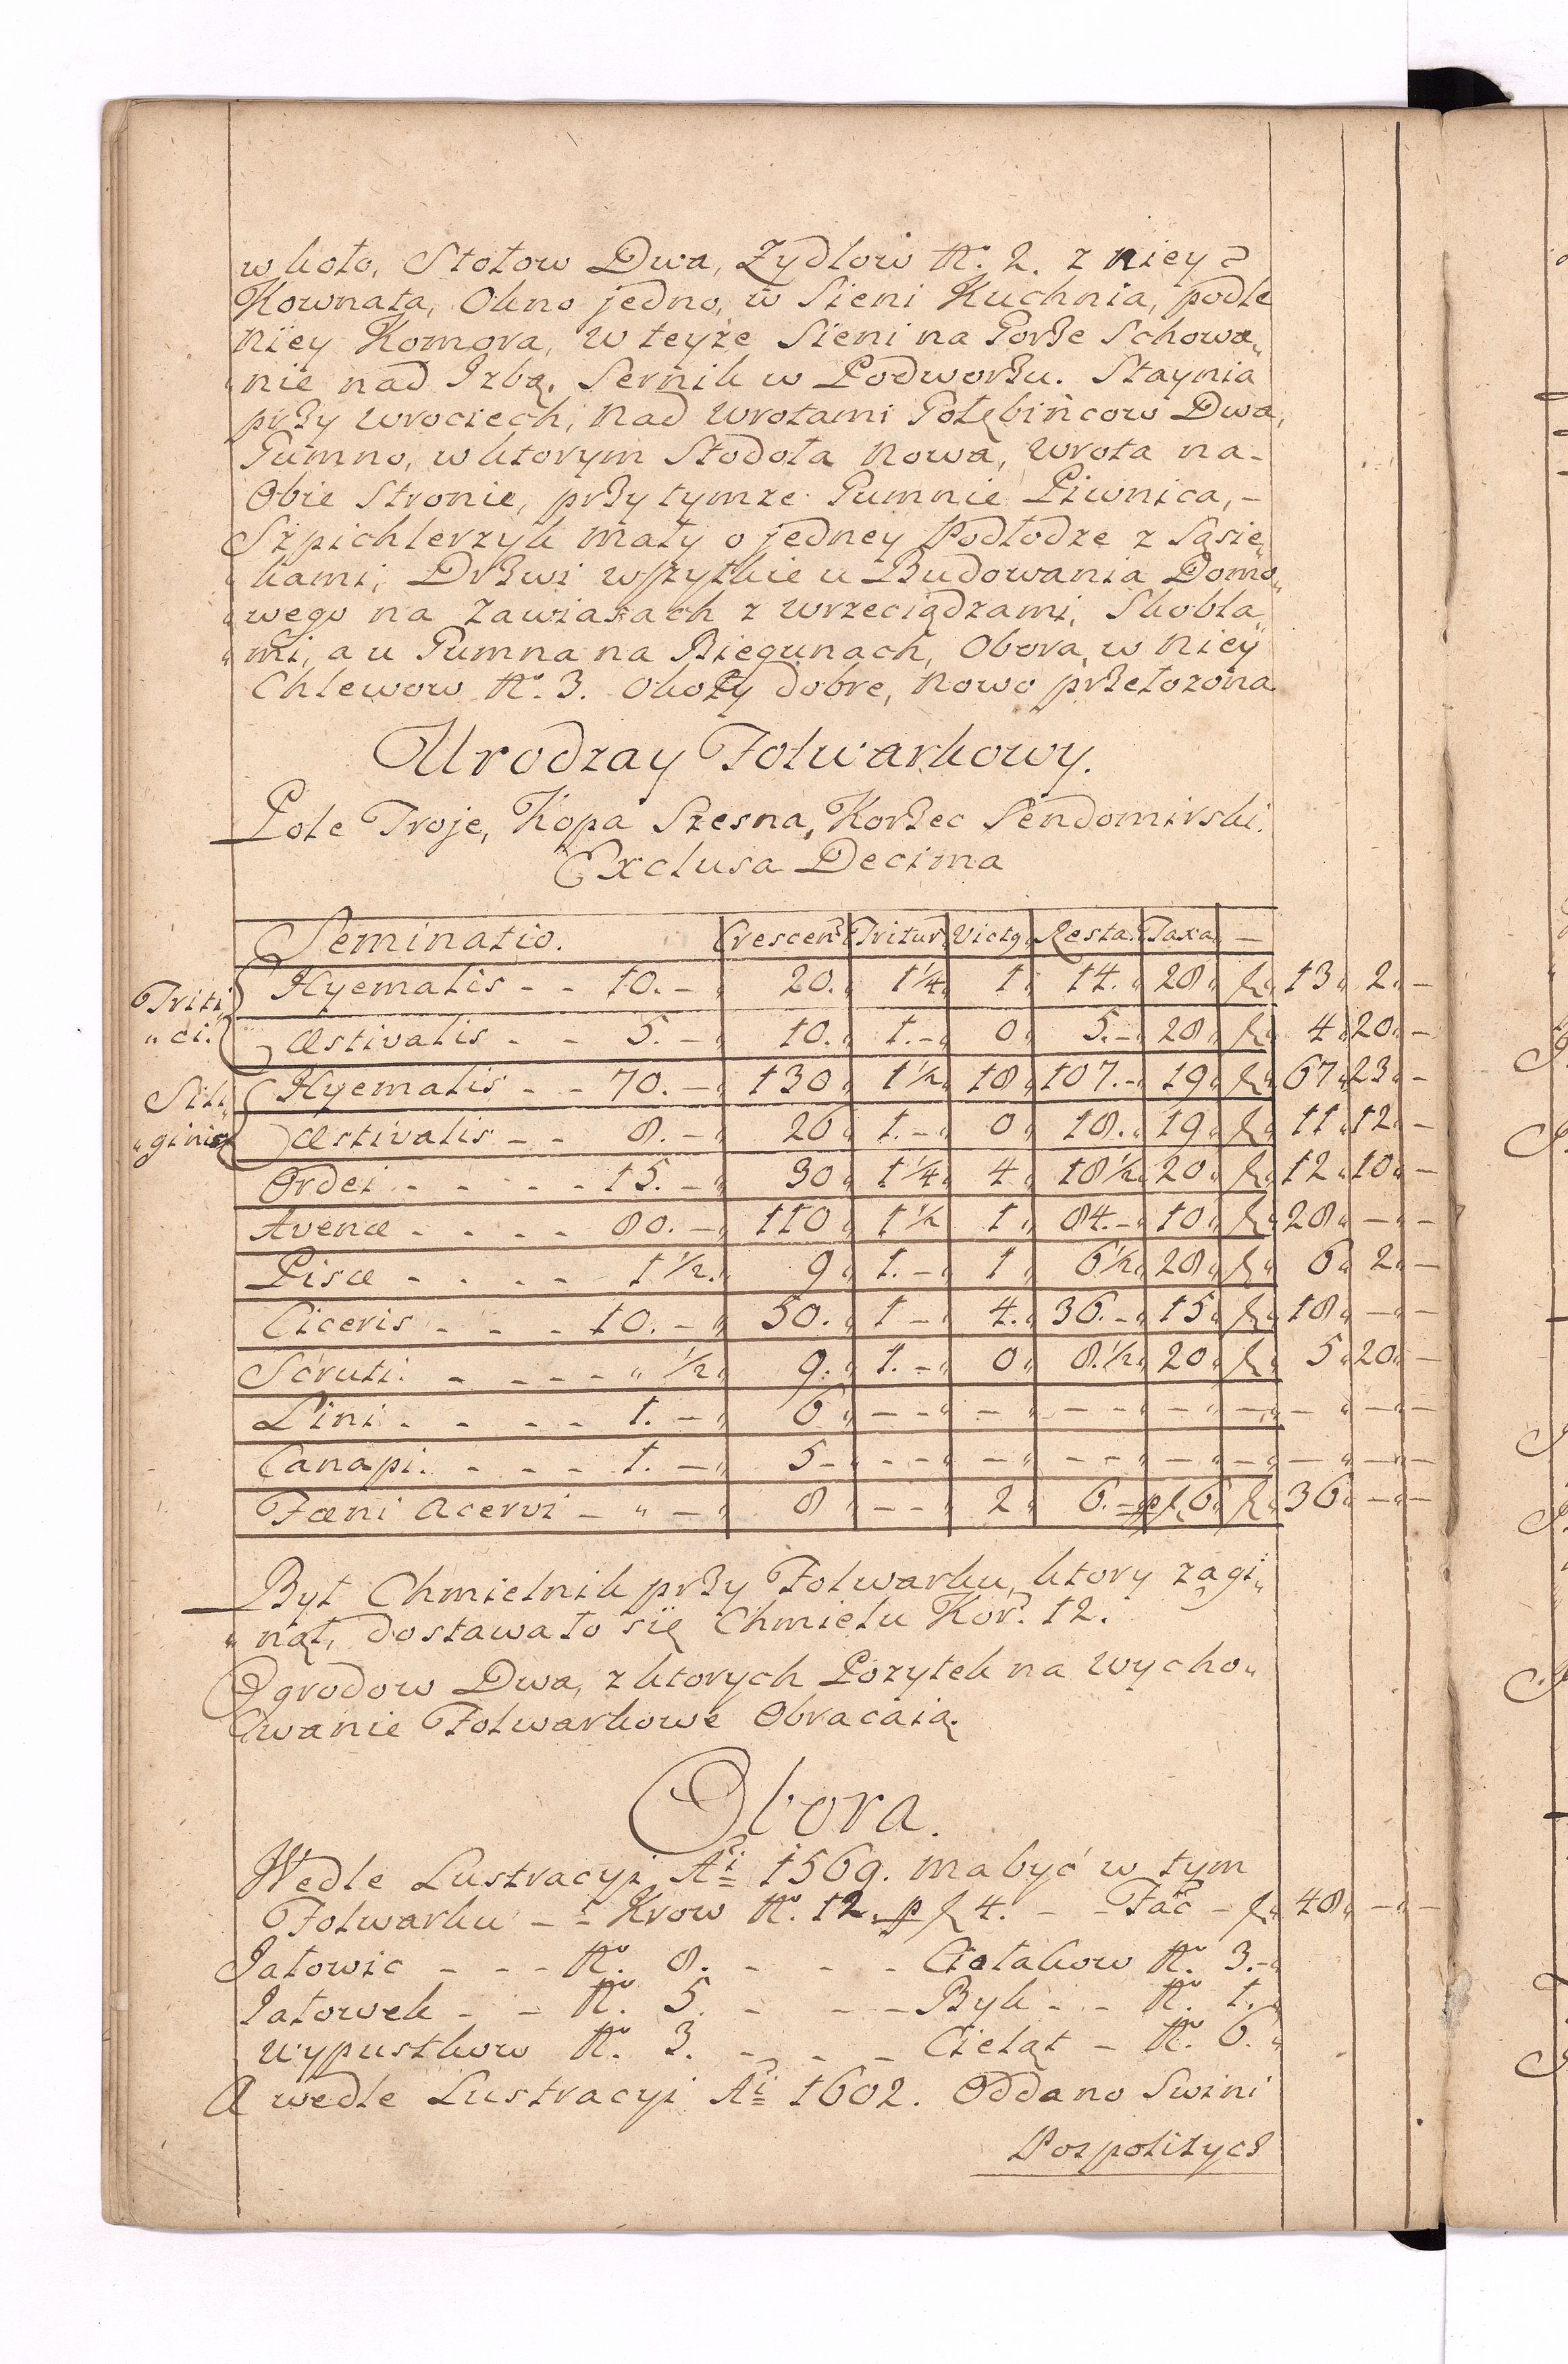 w koło, Stołow Dwa, Zydlow N. 2. z niey
Kownata, Okno jedno, w Sieni Kuchnia, podle
niey Komora, w teyże Sieni na Gorze Schowa„
„nie nad Izbą. Sernik w Podworzu. Staynia
przy wrociech, nad wrotami Gołębińcow Dwa,
Gumno, w ktorym Stodoła nowa, wrota na-
Obie Stronie, przy tymże Gumnie Piwnica, -
Szpichlerzyk mały o jedney Podłodze z Sąsie„
„kami, Drzwi wszytkie u Budowania Domo„
„wego na zawiasach z wrzeciądzami, Skobla„
„mi, a u Gumna na Biegunach, Obora, w niey
Chlewow N. 3. Okoły dobre, nowo przełozona
Urodzay Folwarkowy.
Pole Troje, Kopa Szesna, Korzec Sendomirski.
Exclusa Decima
Seminatio. Crescen: Tritur: Victq Resta. Taxa. -
Triti„ Hyemalis - - 10. - 20. 1¼ 1 14. 28 f 13 2 -
„ci. Æstivalis - - 5. - 10. 1. - 0 5. - 28 f 4 20 -
Sili„ Hyemalis - - 70. - 130 1½ 18 107. - 19 f 67 23 -
„ginis Æstivalis - - 8. - 20 1. - 0 18. 19 f 11 12 -
Ordei - - - - 15. - 30 1¼ 4 18½ 20 f 12 10 -
Avenæ - - - - 80. - 110 1½ 1 84. - 10 f 28 - -
Pisæ - - - - 1½. 9 1. - 1 6½ 28 f 6 2 -
Ciceris - - - 10. - 50. 1 - 4. 36. - 15 f 18 - -
Scruti. - - - - „ ½ 9. 1. - 0 8.½ 20 f 5 20 -
Lini - - - - 1. - 6 - - - - - - - - - -
Canapi. - - - 1. - 5 - - - - - - - - - - -
Fæni Acervi - „ - 8 - - 2 6. - p f 6 f 36 - -
Był Chmielnik przy Folwarku, ktory zagi„
„nął, dostawało się Chmielu Kor. 12.
Ogrodow Dwa, z ktorych Pozytek na wycho„
wanie Folwarkowe Obracaią.
Obora.
Wedle Lustracyi Ai 1569. ma być w tym
Folwarku - - Krow N. 12. p f 4. - - Fac - f 48 - -
Jałowic - - - N. 8. - - - Ciołakow N. 3. -
Jałowek - - N. 5. - - - Byk - - N. 1.
wypustkow N. 3. - - - Cieląt - N. 6.
A wedle Lustracyi Ai 1602. Oddano Swini
Pospolitych